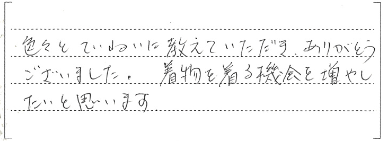 色々とていねいに教えていただき、ありがとう
ございました。 着物を着る機会を増やし
たいと思います